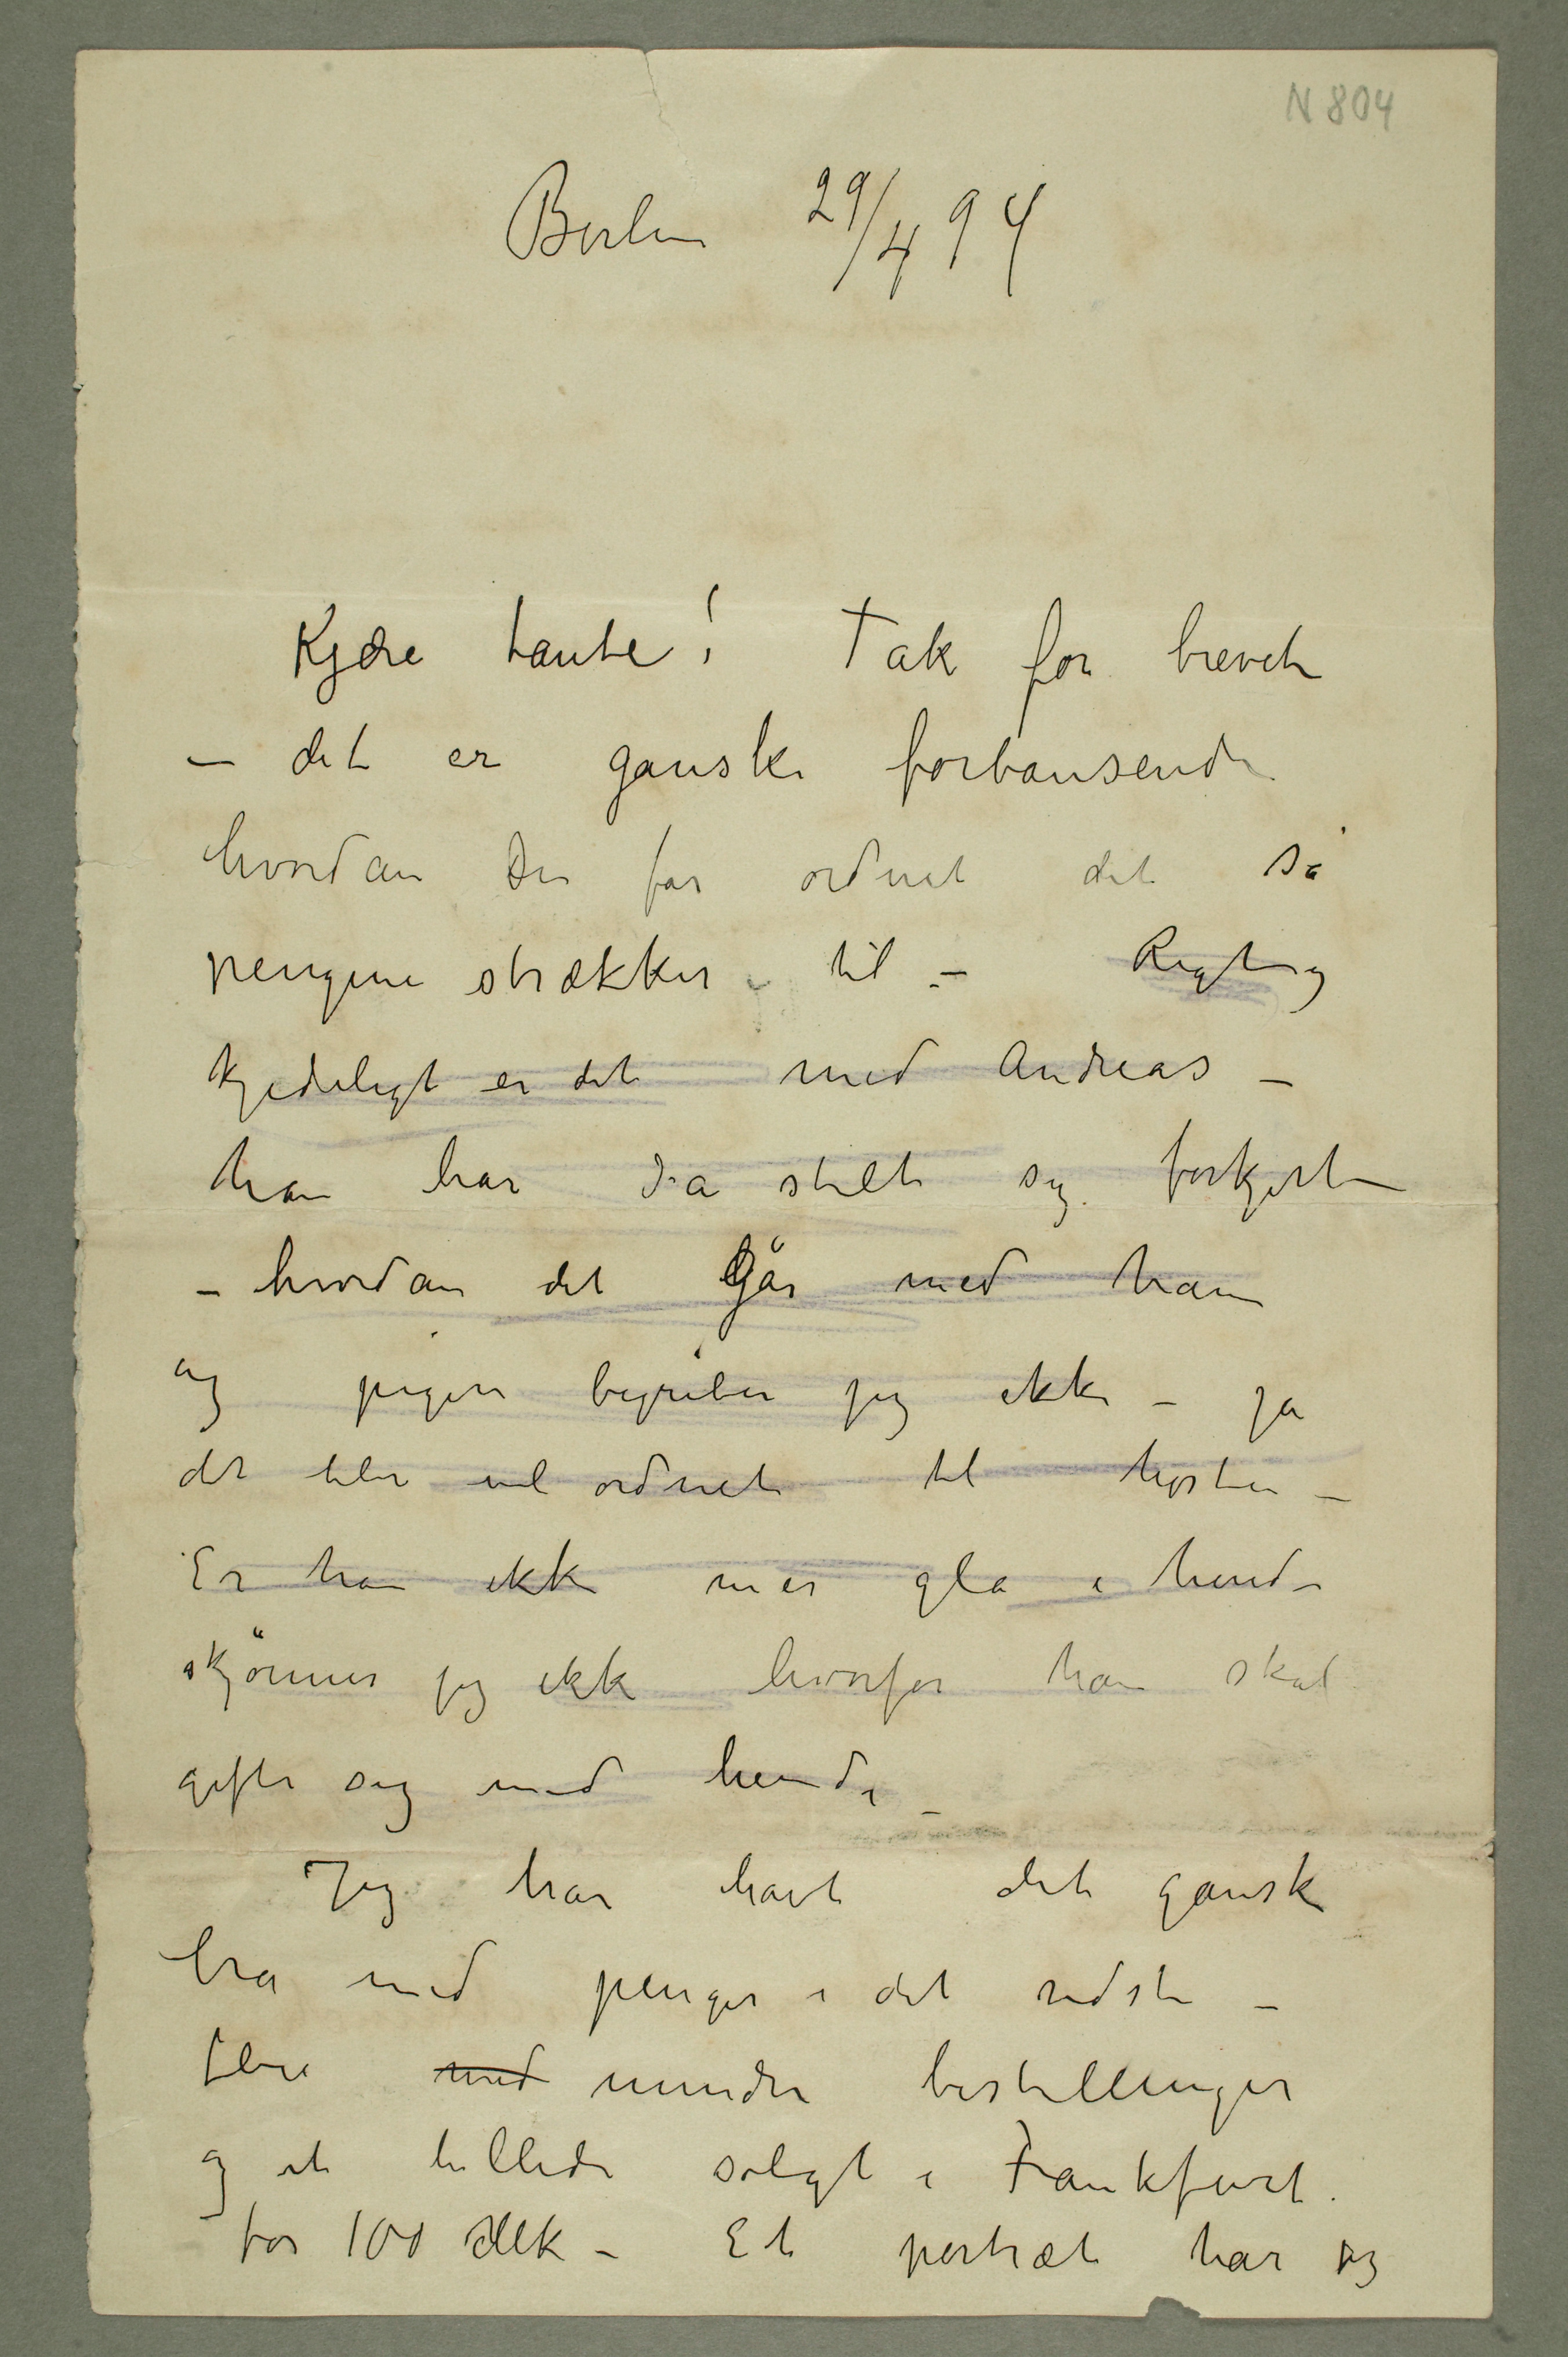 N 804
Berlin 29/4 94
Kjære tante! Tak for brevet
– det er ganske forbausende
hvordan De får ordnet det så
pengene strækker til – Regtig
kjedeligt er det med Andreas –
han har da stilt sig forkjert
– hvordan det går med ham
og pigen begriber jeg ikke – ja
det blir vel ordnet til høsten –
Er han ikke mer gla i hende
skjönner jeg ikke hvorfor han skal
gifte sig med hende –
Jeg har havt det ganske
bra med penger i det sidste –
flere med mindre bestillinger
og et billede solgt i Frankfurt.
for 100 Mk – Et portræt har jeg